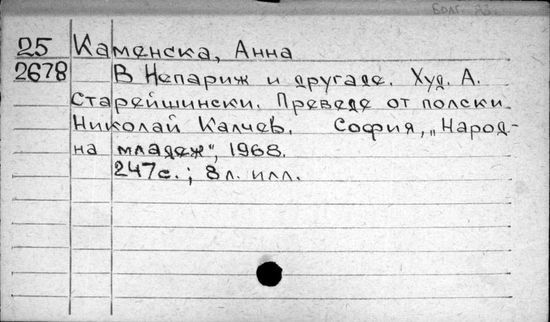 Болг.
25 Каменска, Анна
2678 В Непариж и другаде. Худ. А.
Старейшински. Преведе от полски
Николай Калчев. София, „Народ-
на младеж", 1968.
247с.; 8л. илл.